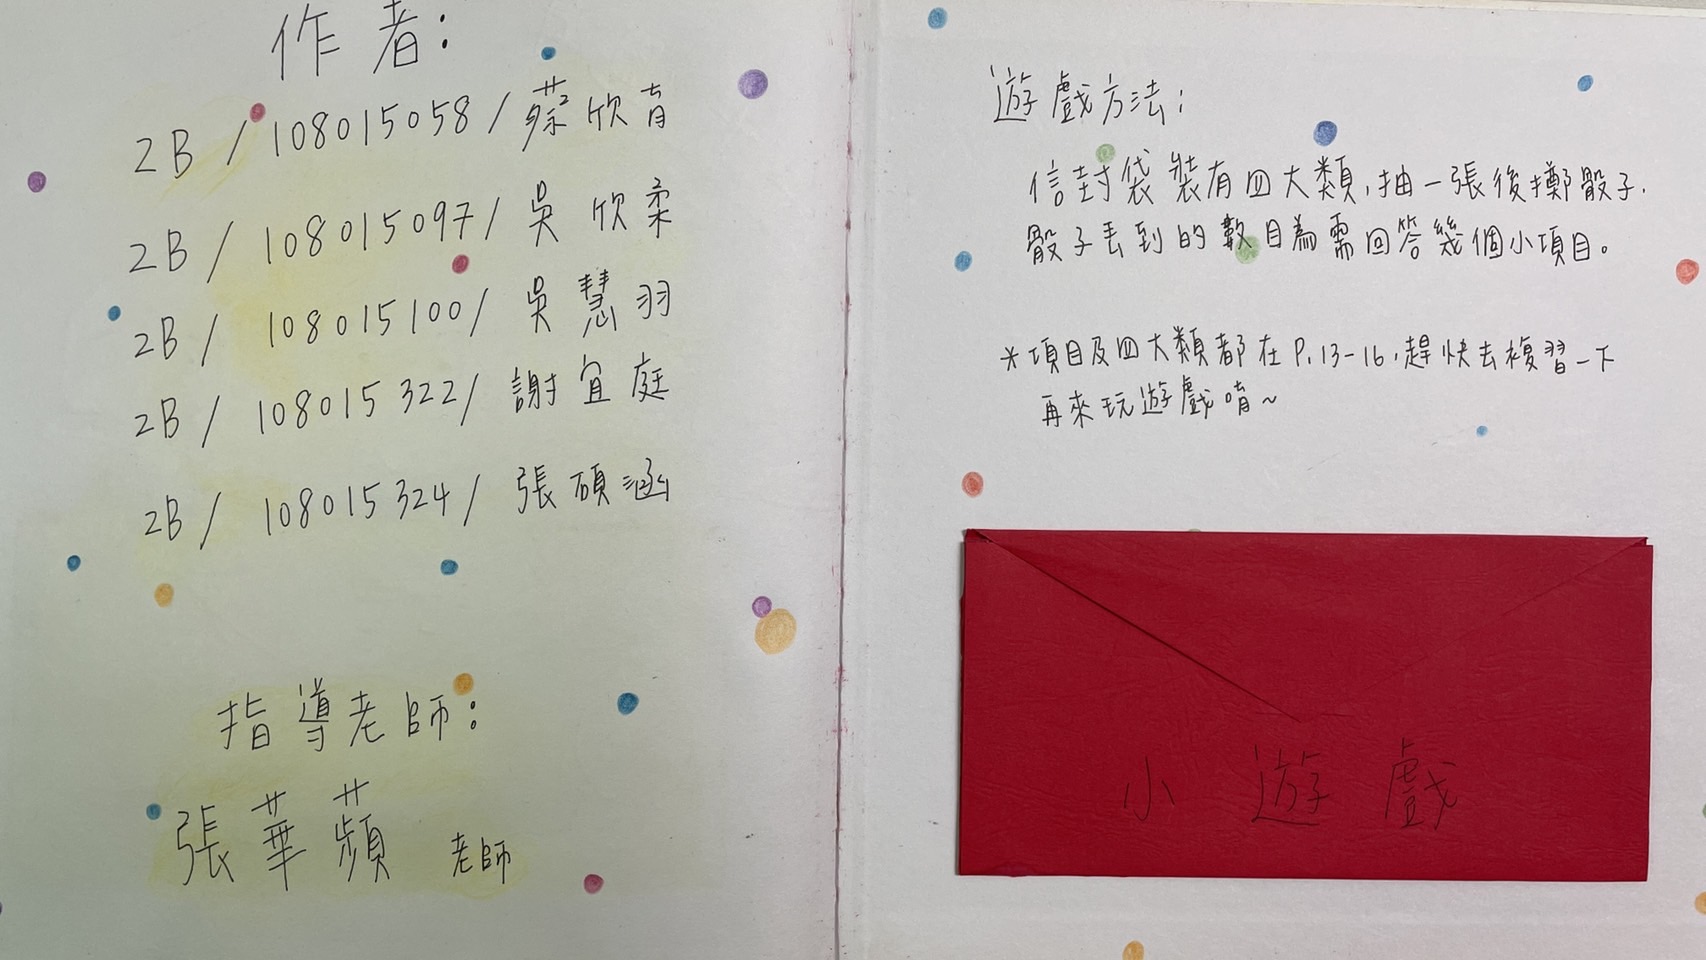 作者:
2B / 108015058 / 蔡欣育
2B / 108015097 / 吳欣柔
2B / 108015100 / 吳慧羽
2B / 108015322 / 謝宜庭
2B / 108015324 / 張碩涵
指導老師:
張華蘋 老師
遊戲方法:
信封袋裝有四大類,抽一張後擲骰子.
骰子丟到的數目為需回答幾個小項目。
*項目及四大類都在P.13-16,趕快去複習一下
再來玩遊戲唷~
小遊戲